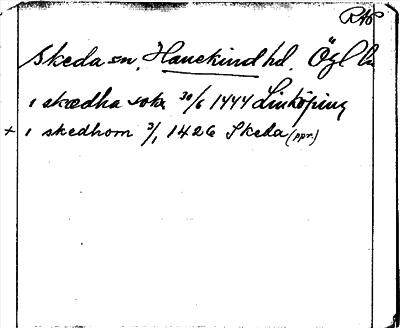 RAP
Skeda sn, Hanekind hd. Ögl
i skædha sokn 30/6 1444 Linköping
+ i skedhom 3/1 1426 Skeda (ppr.)